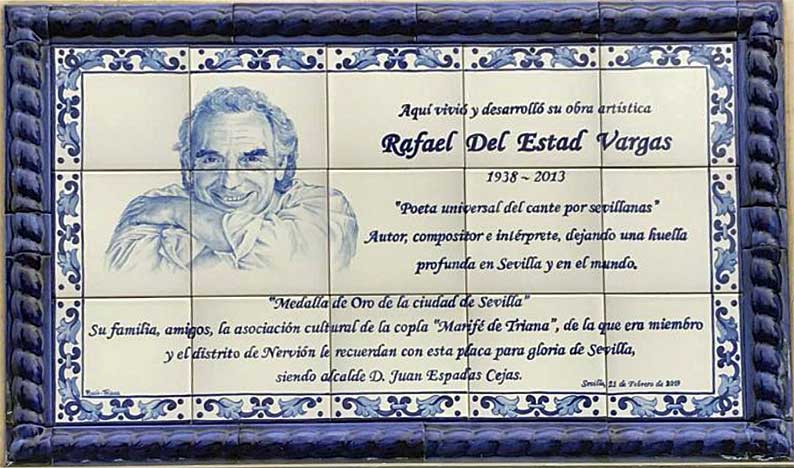 Aquí vivió y desarrolló su obra artística
Rafael Del Estad Vargas
1938 ~ 2013
"Poeta universal del cante por sevillanas"
Autor, compositor e intérprete, dejando una huella
profunda en Sevilla y en el mundo.
"Medalla de Oro de la ciudad de Sevilla"
Su familia, amigos, la asociación cultural de la copla "Marifé de Triana", de la que era miembro
y el distrito de Nervión le recuerdan con esta placa para gloria de Sevilla,
siendo alcalde D. Juan Espadas Cejas.
Sevilla, 21 de Febrero de 2019